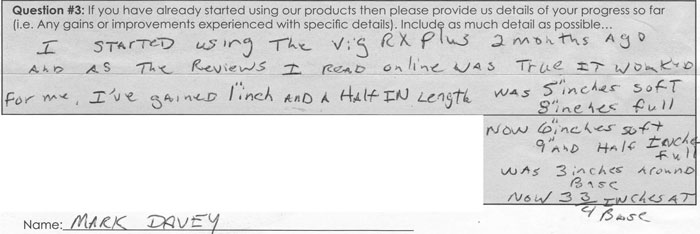 Question #3: If you have already started using our products then please provide us details of your progress so far
(i.e. Any gains or improvements experienced with specific details). Include as much detail as possible...
I STARTED using The Vig RX Plus 2 months Ago
AND AS The Reviews I READ online WAS True IT WORKED
For me, I've gAINED 1"inch AND A HALF IN Length WAS 5"inches SOFT
8"inches full
NOW 6"inches soft
9"AND HALF Inches
full
WAS 3 inches Around
BASE
NOW 3 3/4 INCHES AT
Base
Name: MARK DAVEY